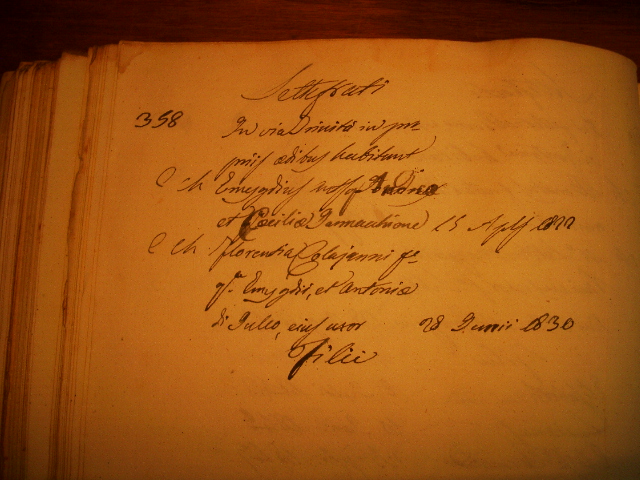 Settefrati
358 In via Trinità in pro-
priis ædibus habitant
C Ch Emygdius
et Cæciliæ 15 Aplis 1822
C Ch Florentia Colajanni fa
qm Emygdii, et Antoniæ
di Tulio, ejus uxor 28 Junii 1830
Filii